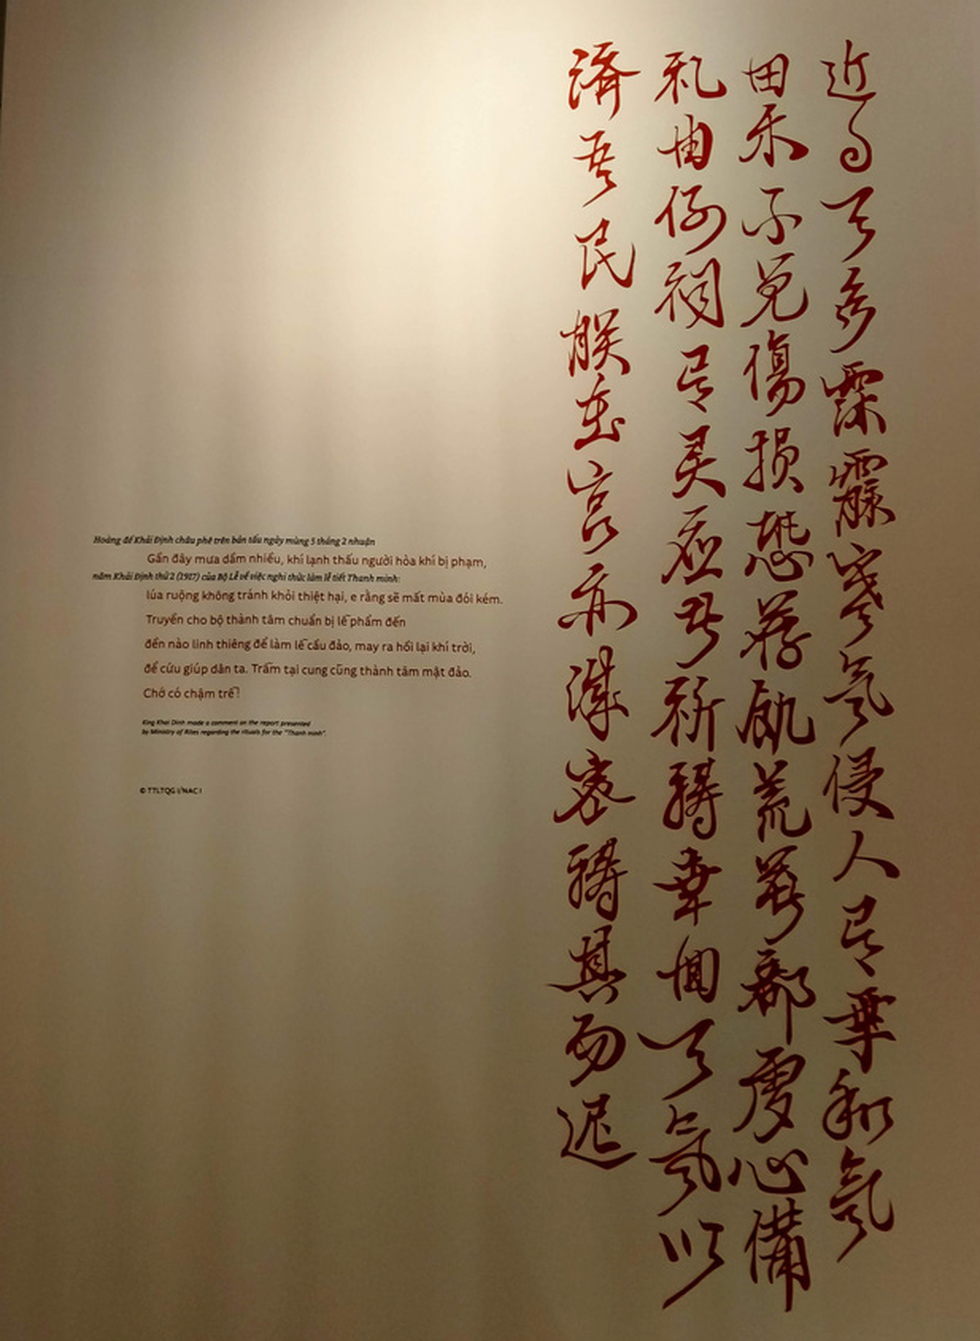 近日天多霂霢寒氣侵人有乖和氣
田禾不免傷損恐荐飢荒着部虔心備
礼由例祠有灵应者祈禱幸回天氣以
濟吾民朕在宮亦誠密禱其勿遲
Hoàng đế Khải Định châu phê trên bản tấu ngày mùng 5 tháng 2 nhuận
Gần đây mưa dầm nhiều, khí lạnh thấu người hòa khí bị phạm,
năm Khải Định thứ 2 (1917) của Bộ Lễ về việc nghi thức làm lễ tiết Thanh minh:
lúa ruộng không tránh khỏi thiệt hại, e rằng sẽ mất mùa đói kém.
Truyền cho bộ thành tâm chuẩn bị lễ phẩm đến
đền nào linh thiêng để làm lễ cầu đảo, may ra hồi lại khí trời,
để cứu giúp dân ta. Trẫm tại cung cũng thành tâm mật đảo.
Chớ có chậm trễ!
King Khai Dinh made a comment on the report presented
by Ministry of Rites regarding the rituals for the "Thanh minh".
© TTLTQG I/NAC I